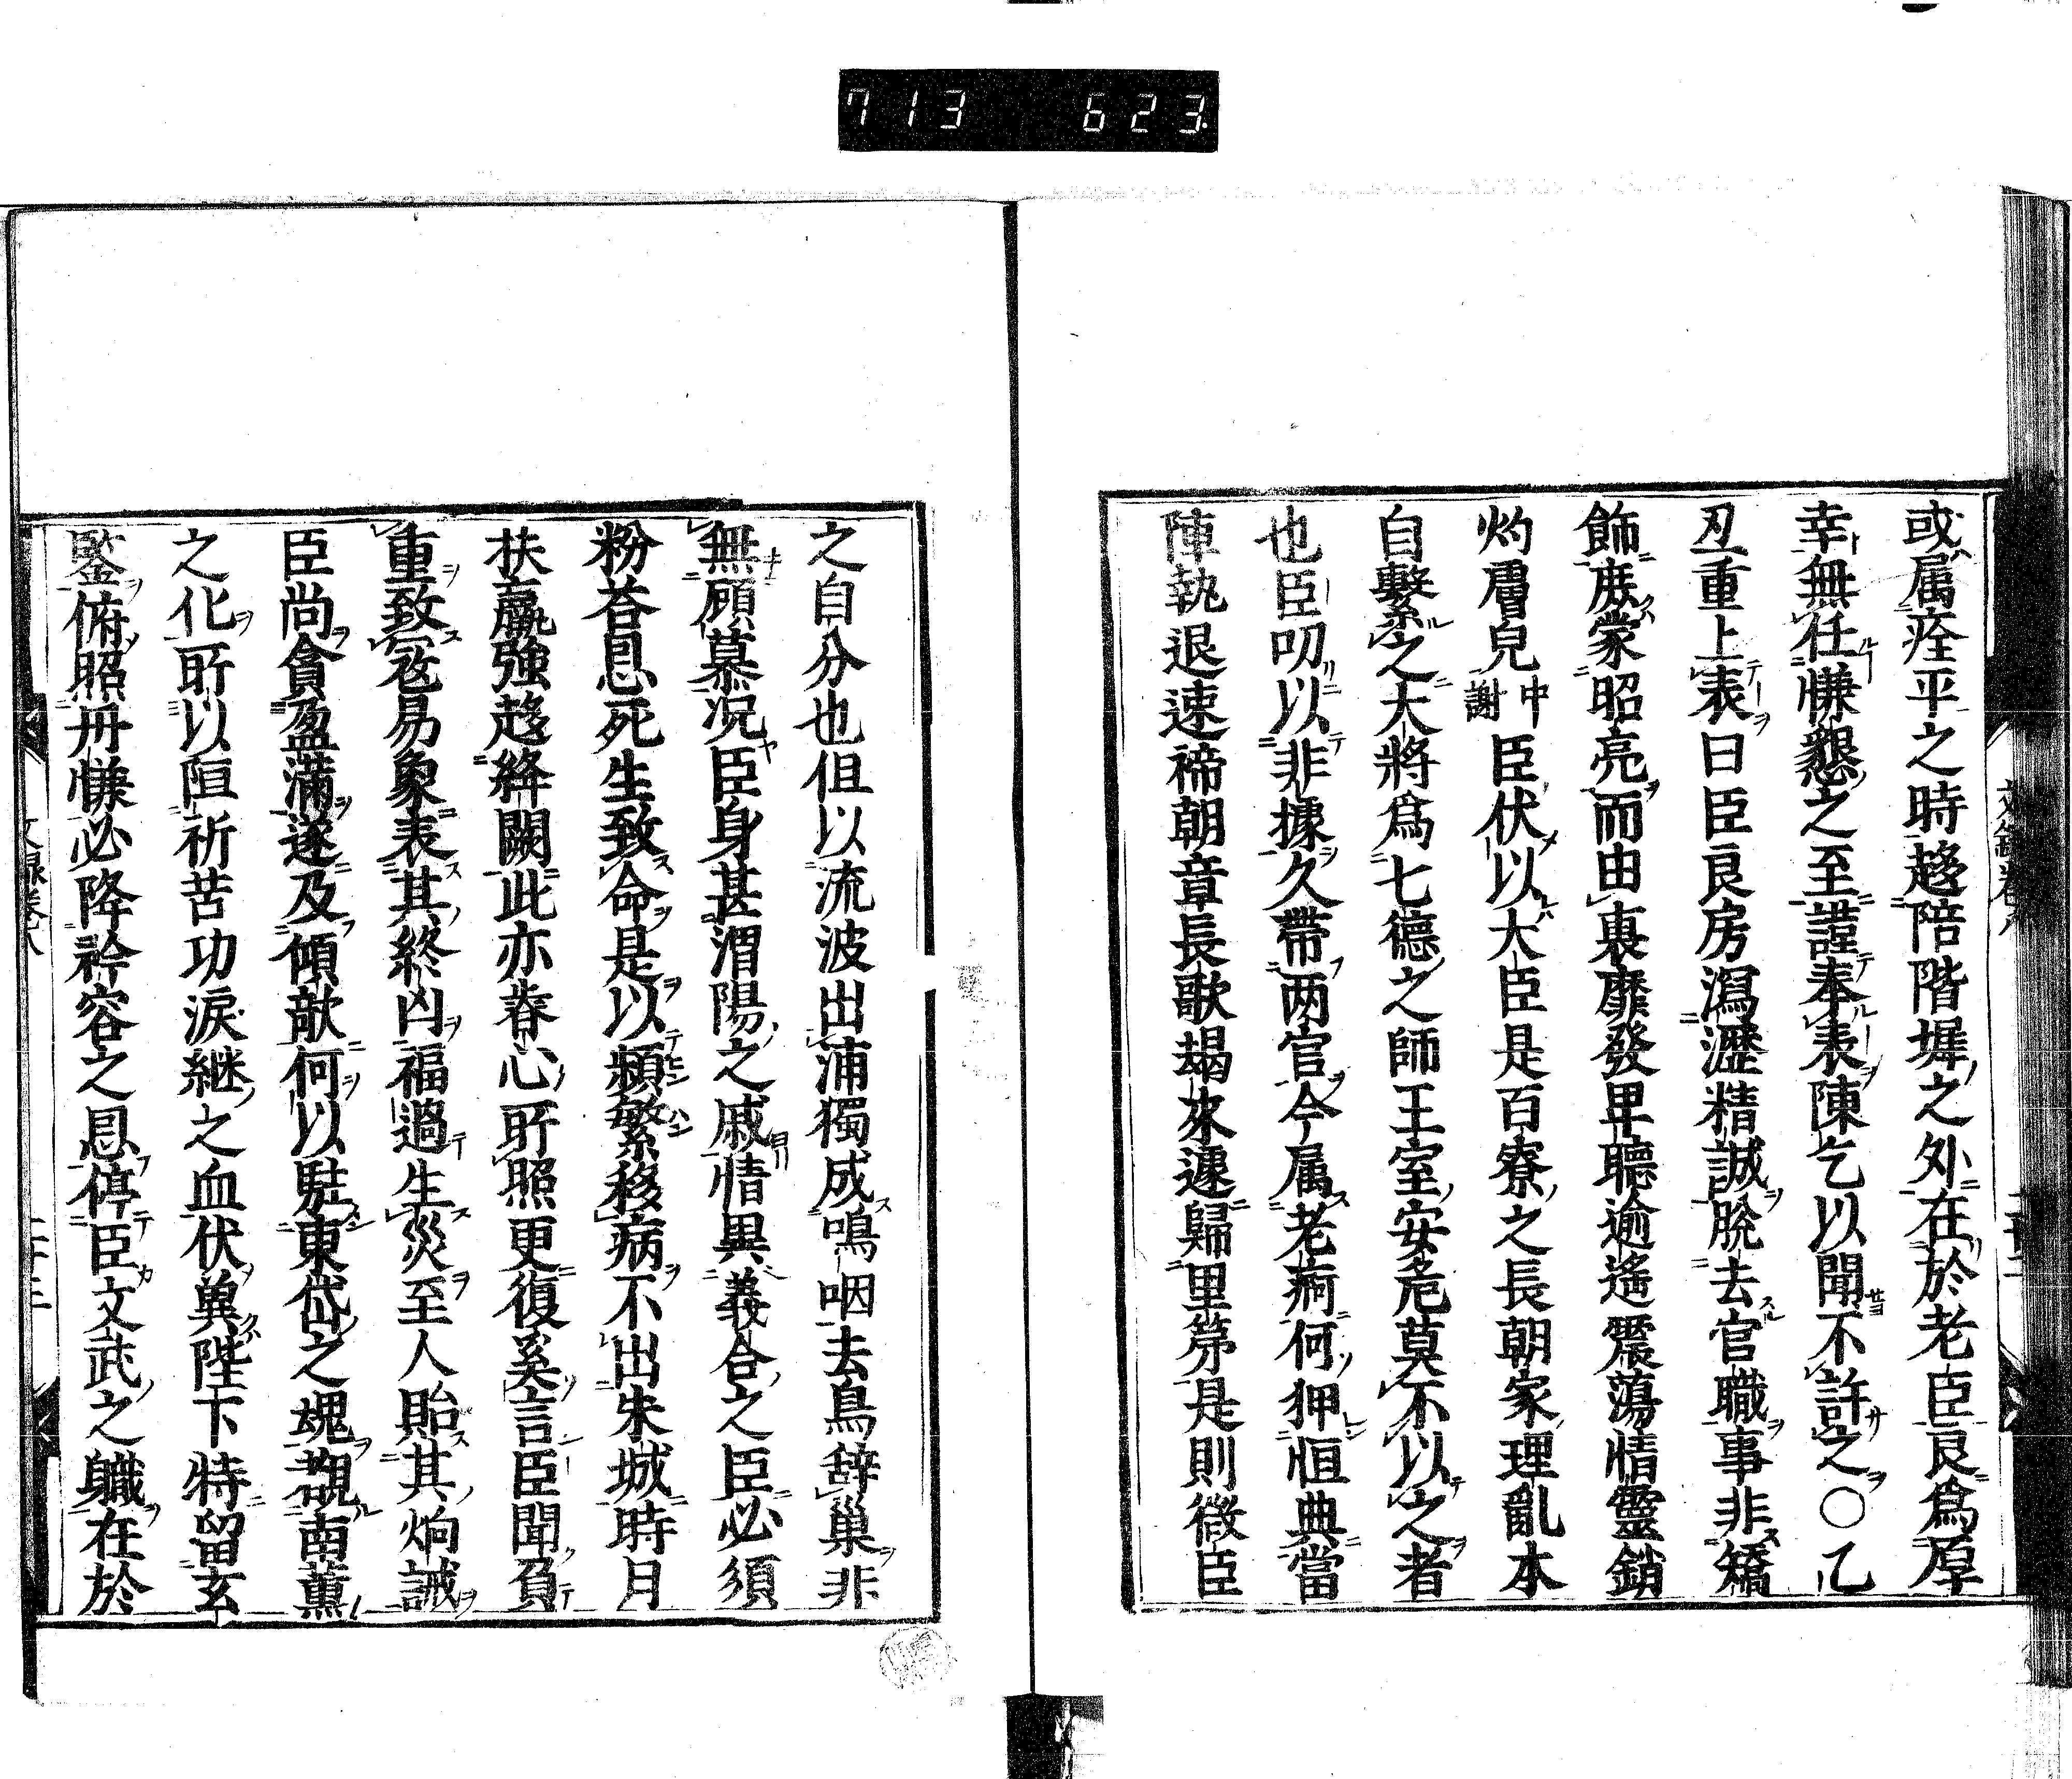 713 623
或属痊平之時趍陪階墀之外在於老臣良爲厚
幸無任慊懇之至謹奉表陳乞以聞不許之〇乙
丑重上表曰臣良房瀉瀝精誠脱去官職事非矯
飾庻蒙昭亮而由裏靡發卑聽逾遙震蕩情靈銷
灼膚皃中謝臣伏以大臣是百寮之長朝家理亂本
自繫之大將爲七德之師王室安危莫不以之者
也臣叨以非據久帶两官今属老痾何狎恒典當
陣執退速褫朝章長歌朅來遽歸里苐是則微臣
之自分也但以流波出浦獨成鳴咽去鳥辞巢非
無顧慕况臣身甚渭陽之戚情異義合之臣必須
粉荅恩死生致命是以頻繁移病不出朱城時月
扶羸強趍絳闕此亦春心所照更復奚言臣聞負
重致寇易象表其終凶福過生災至人貽其炯誡
臣尚貪盈滿遂及傾欹何以駐東岱之魂覩南薫
之化所以陌祈苦功淚継之血伏兾陛下特留玄
鍳俯照丹慊必降衿容之恩停臣文武之軄在於